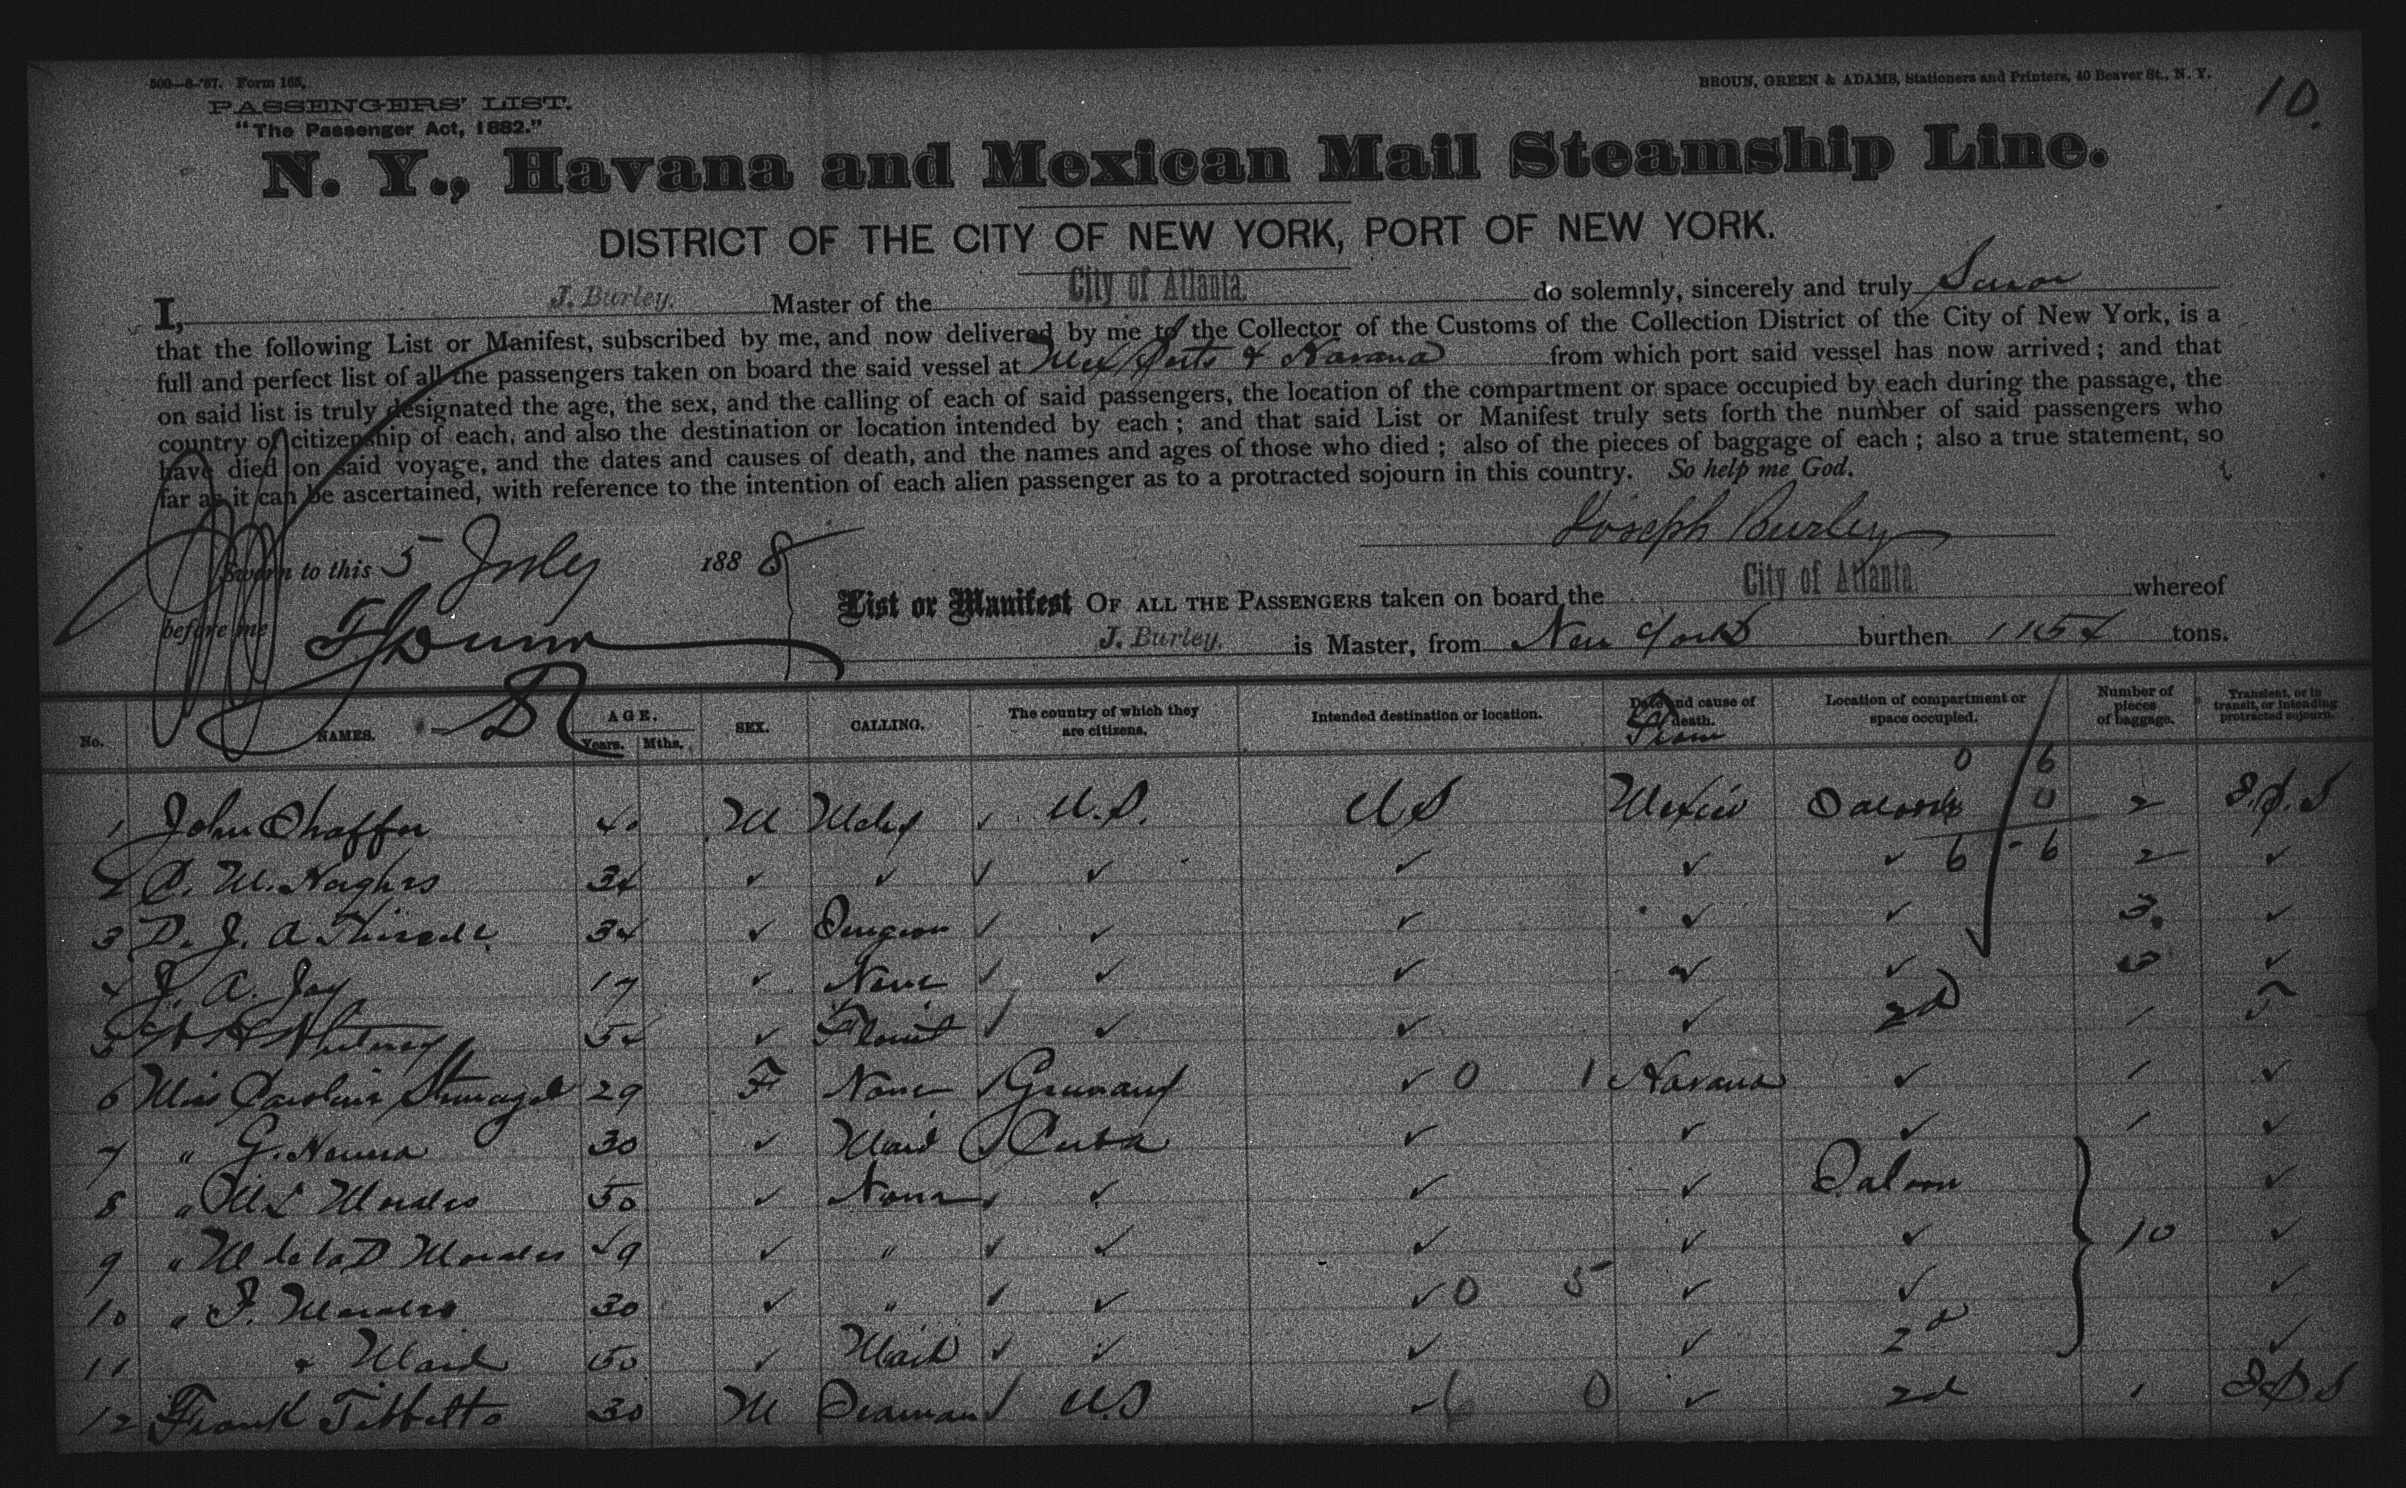 500—8-'87. Form 165.
BROUN, GREEN & ADAMS, Stationers and Printers, 40 Beaver St., N. Y.
10.
PASSENGERS' LIST.
"The Passenger Act, 1882."
N. Y., Havana and Mexican Mail Steamship Line.
DISTRICT OF THE CITY OF NEW YORK, PORT OF NEW YORK.
I, J. Burley. Master of the City of Atlanta. do solemnly, sincerely and truly Swear
that the following List or Manifest, subscribed by me, and now delivered by me to the Collector of the Customs of the Collection District of the City of New York, is a
full and perfect list of all the passengers taken on board the said vessel at Mex Ports & Havana from which port said vessel has now arrived; and that
on said list is truly designated the age, the sex, and the calling of each of said passengers, the location of the compartment or space occupied by each during the passage, the
country of citizenship of each, and also the destination or location intended by each; and that said List or Manifest truly sets forth the number of said passengers who
have died on said voyage, and the dates and causes of death, and the names and ages of those who died; also of the pieces of baggage of each; also a true statement, so
far as it can be ascertained, with reference to the intention of each alien passenger as to a protracted sojourn in this country. So help me God.
Joseph Burley
Sworn to this 5 July 1888
before me
List or Manifest OF ALL THE PASSENGERS taken on board the City of Atlanta. whereof
J. Burley. is Master, from New York burthen 1154 tons.
No. NAMES. AGE. Years. Mths. SEX. CALLING. The country of which they are citizens. Intended destination or location. Date and cause of death. From Location of compartment or space occupied. Number of pieces of baggage. Transient, or in transit, or intending protracted sojourn.
0 6
1 John Shaffer 40 M U.S. U S Mexico Saloon 0 2
2 34 ✓ ✓ ✓ ✓ ✓ ✓ ✓ 6 - 6 2 ✓
3 D. J. A. 34 ✓ Surgeon ✓ ✓ ✓ ✓ ✓ 3. ✓
4 J. A. Jay 17 ✓ None ✓ ✓ ✓ ✓ ✓ ✓
5 54 ✓ Florist ✓ ✓ ✓ ✓ 2d 1
6 Miss Caroline 29 F None ✓ Germany ✓ 0 1 Havana ✓ 1 ✓
7 " G. 30 ✓ Maid ✓ Cuba ✓ ✓ ✓ 1 ✓
8 " M L Morales 50 ✓ None ✓ ✓ ✓ ✓ Saloon ✓
9 " M de la D Morales ✓ " ✓ ✓ ✓ ✓ ✓ 10 ✓
10 " F. Morales 30 ✓ " ✓ ✓ ✓ 0 5 ✓ ✓ ✓
11 & Maid 50 ✓ Maid ✓ ✓ ✓ ✓ 2d ✓
12 Frank Tibbetts 30 M Seaman ✓ U.S ✓ 6 0 ✓ 2d 1